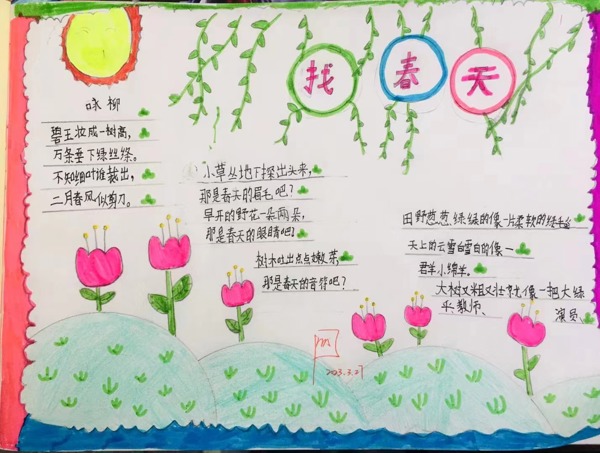 找春天
咏柳
碧玉妆成一树高，
万条垂下绿丝绦。
不知细叶谁裁出，
二月春风似剪刀。
小草丛地下探出头来，
那是春天的眉毛吧？
早开的野花一朵两朵，
那是春天的眼睛吧？
树木吐出点点嫩芽，
那是春天的音符吧？
田野葱葱绿绿的像一片柔软的绿
天上的云雪白雪白的像一
群羊小绵羊。
大树又粗又壮像一把大绿
演员